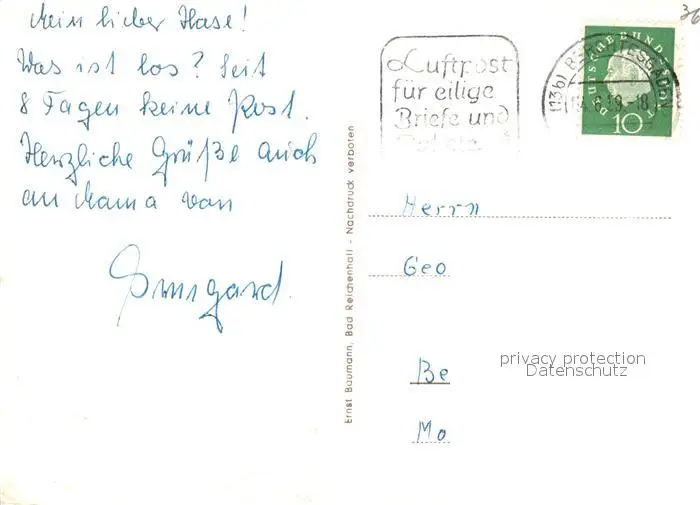 Mein lieber Hase!
Was ist los? Seit
8 Tagen keine Post.
Herzliche Grüße auch
an Mama von
Irmgard.
Ernst Baumann, Bad Reichenhall - Nachdruck verboten
36
Luftpost
für eilige
Briefe und
(13b) BERCHTESGADEN
DEUTSCHE BUNDESPOST
10
Herrn
Geo
Be
Mo
privacy protection
Datenschutz